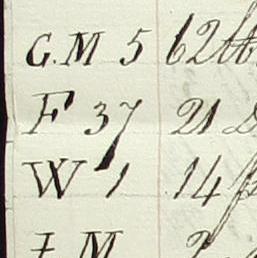 G.M 5 62
F 37 21
W 1 14
M